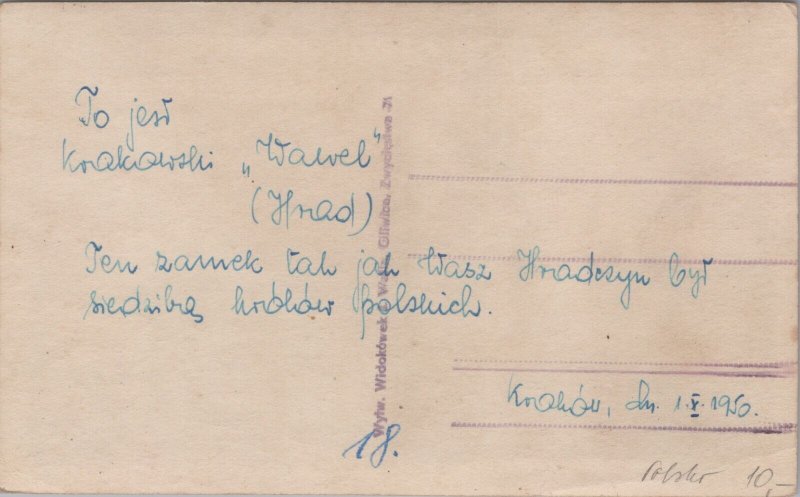 To jest
Krakowski „Wawel"
(Hrad)
Ten zamek tak jak Wasz Hradczyn był
siedzibą królów polskich.
Kraków, dn. 1.X.1950.
18.
Polsko 10,-
Wytw. Widokówek Gliwice, Zwycięstwa 31